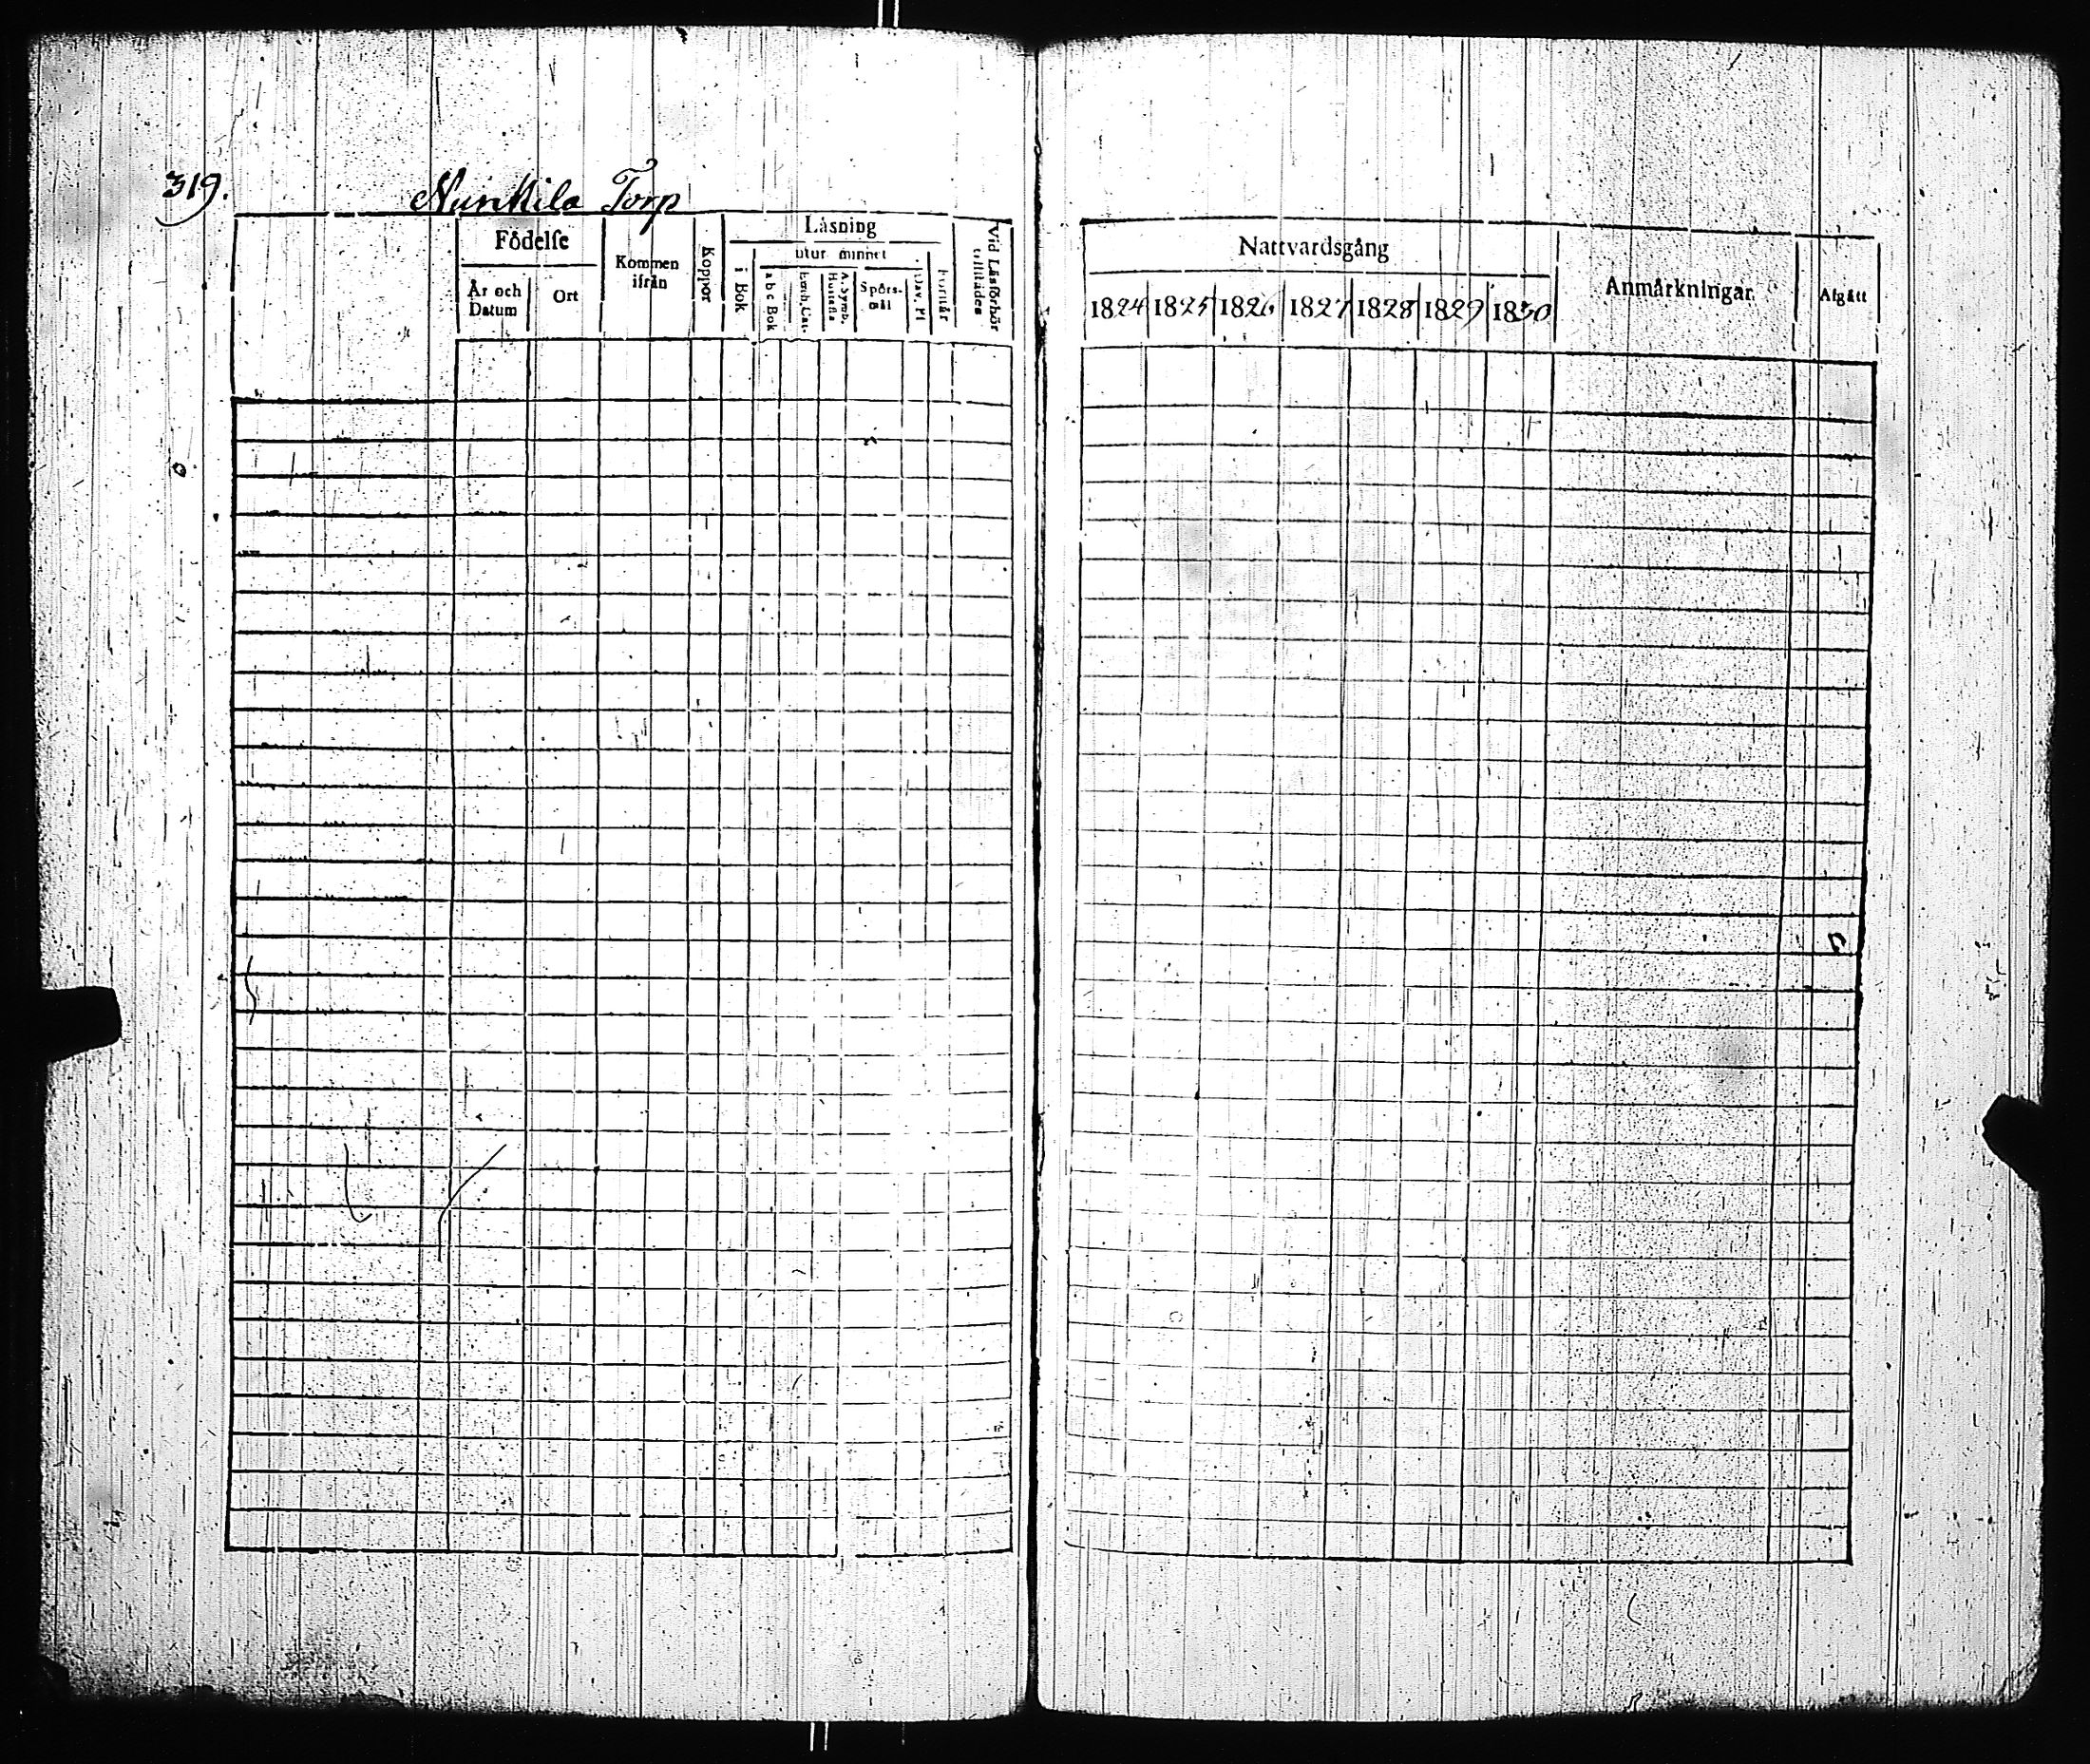 319.
Nunkila Torp
Födelse
Kommen ifrån
Koppor
Läsning
utur minnet
Vid Läsförhör tillstädes
År och Datum
Ort
i Bok
a b c Bok
Luth. Cat.
A. Symb. Hustafla
Spörs-mål
Dav. Ps
Förstår
Nattvardsgång
Anmärkningar
Afgått
1824 1825 1826 1827 1828 1829 1830